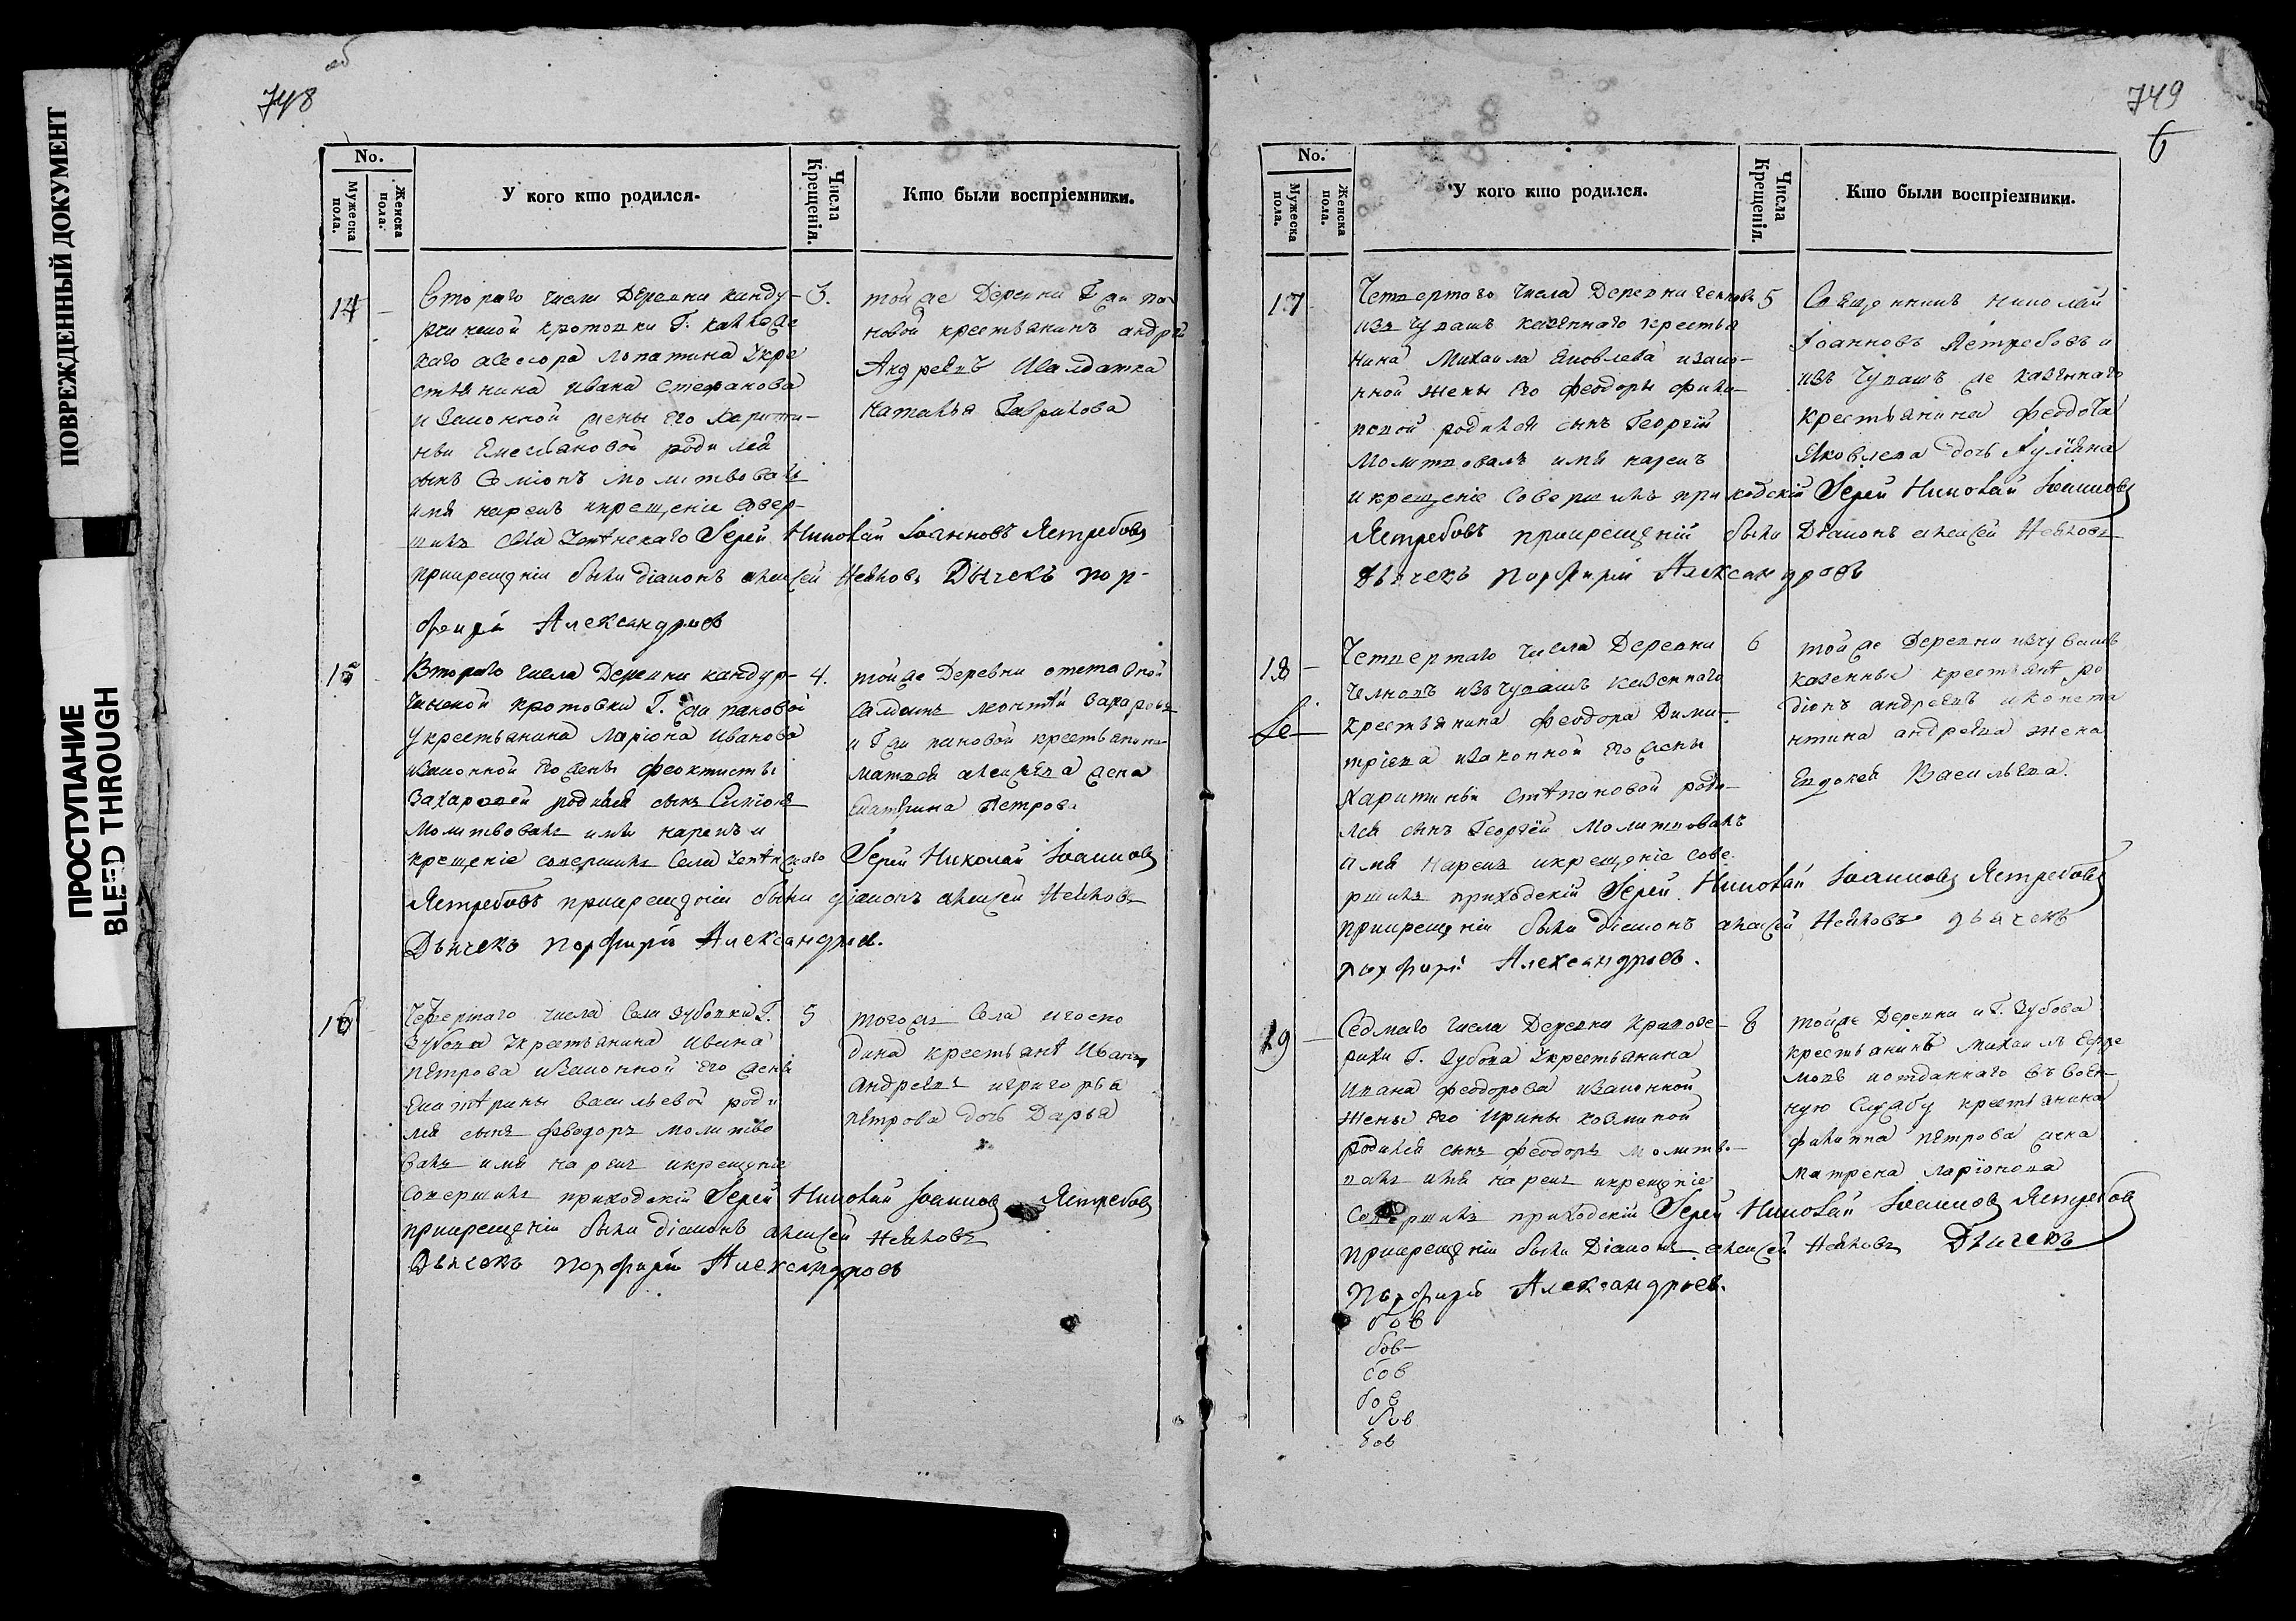 ПОВРЕЖДЕННЫЙ ДОКУМЕНТ
ПРОСТУПАНИЕ
BLEED THROUGH
748
No.
Мужеска пола.
Женска пола.
У кого кто родился.
Числа Крещенія.
Кто были воспріемники.
14
Втораго числа Деревни канду-
рчинской кротовки Г.
каго асессора лопатина укре
стьянина ивана стефанова
изаконной жены его харити-
ньи Емельяновой роди лся
сынъ Симіонъ молитвовалъ
имя нарекъ икрещеніе совер-
шилъ села Іерей Николай Іоанновъ Ястребовъ
прикрещеніи были діаконъ алексей Дьячекъ пор-
фирій Александровъ
3.
той же Деревни
новой крестьянинъ андрей
Андреевъ исалдатка
наталья Гаврилова
15
Втораго числа Деревни кандур-
чинской кротовки Г.
у крестьянина ларіона иванова
изаконной его жены феоктисты
Захаровой родился сынъ Симіонъ
молитвовалъ имя нарекъ и
крещеніе совершилъ села Іерей Николай Іоанновъ
Ястребовъ прикрещеніи были діаконъ алексей
Дьячекъ порфирій Александровъ.
4.
той же Деревни отставной
салдатъ леонтій захаровъ
и крестьянина
матвея алексеева жена
екатерина петрова
16
Четвертаго числа Села зубовки Г.
Зубова укрестьянина ивана
петрова изаконной его жены
екатерины васильевой роди
лся сынъ феодоръ молитво
валъ имя нарекъ икрещеніе
совершилъ приходскій Іерей Николай Іоанновъ Ястребовъ
прикрещеніи были діаконъ алексей
Дьячекъ порфирій Александровъ
5
тогожъ Села игоспо
дина крестьянѣ иванъ
андреевъ игригорья
петрова дочь Дарья
749
6
No.
Мужеска пола.
Женска пола.
У кого кто родился.
Числа Крещенія.
Кто были воспріемники.
17
Четвертаго числа Деревни
изъ чувашъ казеннаго крестья
нина Михаила Яковлева изако-
нной жены его феодоры фили-
повой родился сынъ Георгій
молитвовалъ имя нарекъ
икрещеніе совершилъ приходскій Іерей Николай Іоанновъ
Ястребовъ прикрещеній были Діаконъ алексей
дьячекъ порфирій Александровъ
5
Священникъ николай
Іоанновъ Ястребовъ и
изъ чувашъ же казеннаго
крестьянина
Яковлева дочь
18
Четвертаго числа Деревни
челновъ изъ чувашъ казеннаго
крестьянина феодора Дими-
тріева изаконной его жены
Харитиньи степановой роди-
лся сынъ Георгій молитвовалъ
имя нарекъ икрещеніе сове-
ршилъ приходскій Іерей Николай Іоанновъ Ястребовъ
прикрещеніи были діаконъ алексей дьячекъ
порфирій Александровъ.
6
той же Деревни изчувашъ
казенные крестьянѣ ро
діонъ андреевъ иконста
нтина андреева жена
Евдокея Васильева.
19
Седмаго числа Деревни
Г. Зубова укрестьянина
ивана феодорова изаконной
жены его ирины козминой
родился сынъ феодоръ молитв-
валъ имя нарекъ икрещеніе
совершилъ приходскій Іерей Николай Іоанновъ Ястребовъ
прикрещеніи были Діаконъ алексей Дьячекъ
Порфирій Александровъ.
8
тойже Деревни и Г. Зубова
крестьянинъ михаилъ ефре
мовъ иотданнаго въ воен-
ную службу крестьянина
филиппа петрова жена
матрена ларіонова
бов
бов
бов
бов
бов
бов